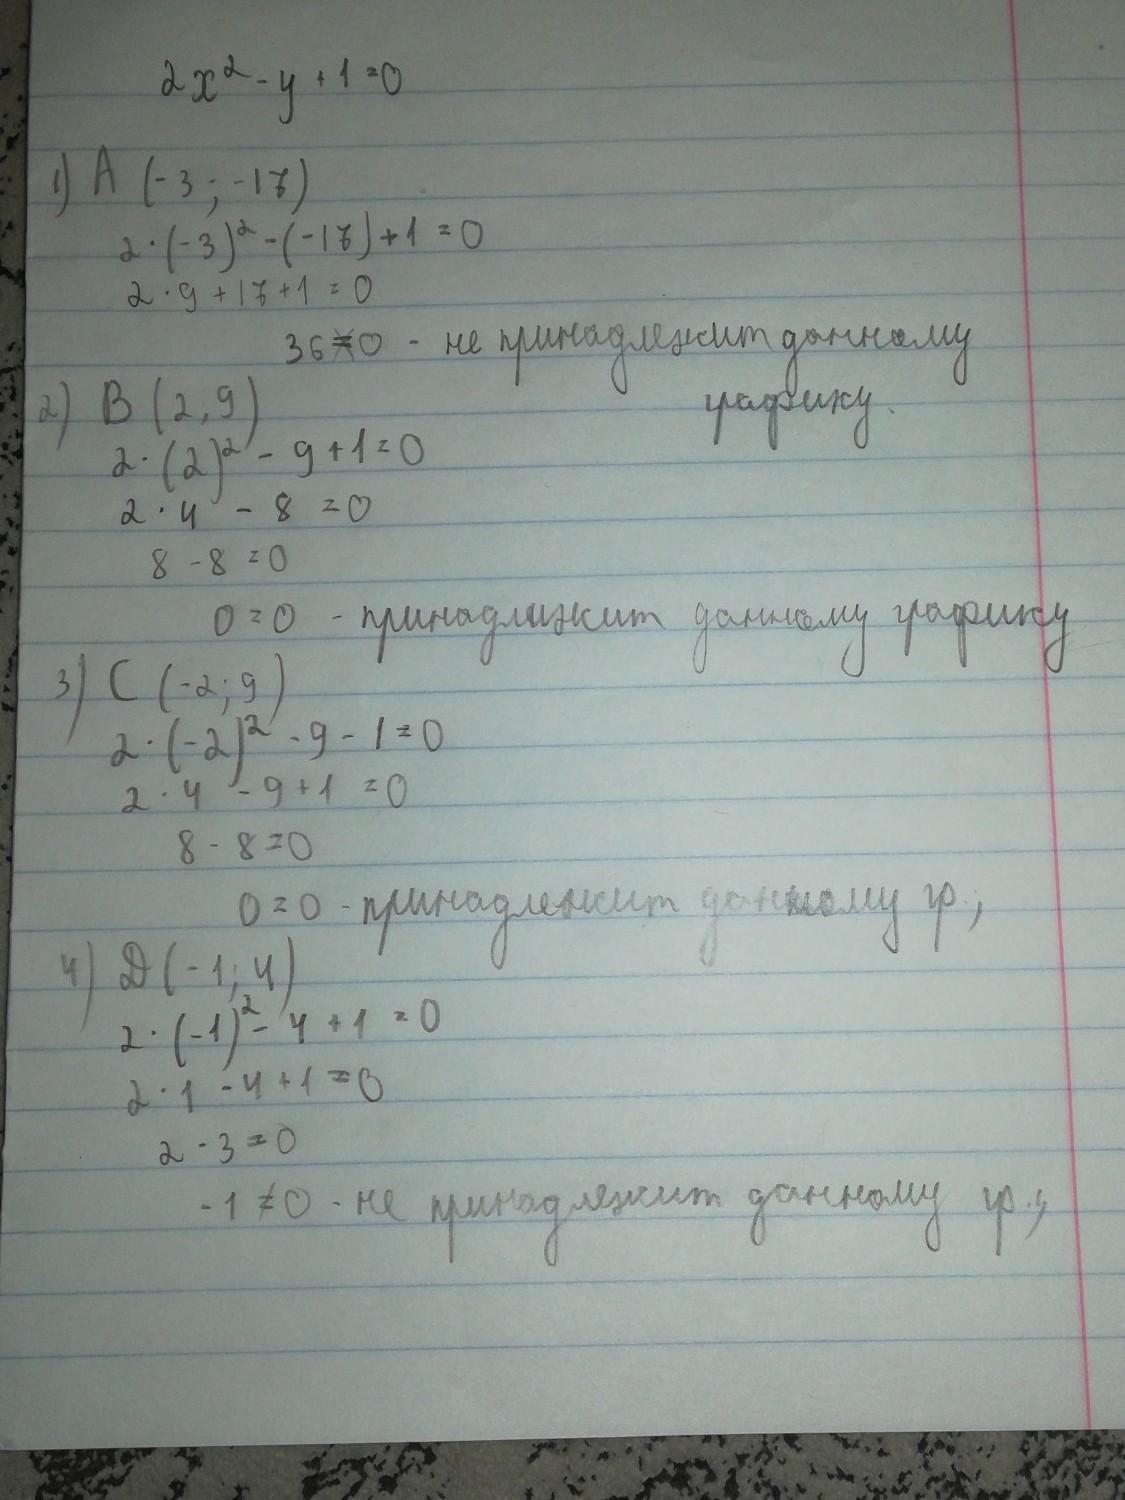 2x² - y + 1 = 0
1) A (-3; -17)
2·(-3)² - (-17) + 1 = 0
2·9 + 17 + 1 = 0
36 ≠ 0 - не принадлежит данному
графику.
2) B (2; 9)
2·(2)² - 9 + 1 = 0
2·4 - 8 = 0
8 - 8 = 0
0 = 0 - принадлежит данному графику
3) C (-2; 9)
2·(-2)² - 9 - 1 = 0
2·4 - 9 + 1 = 0
8 - 8 = 0
0 = 0 - принадлежит данному гр.;
4) D (-1; 4)
2·(-1)² - 4 + 1 = 0
2·1 - 4 + 1 = 0
2 - 3 = 0
-1 ≠ 0 - не принадлежит данному гр.;